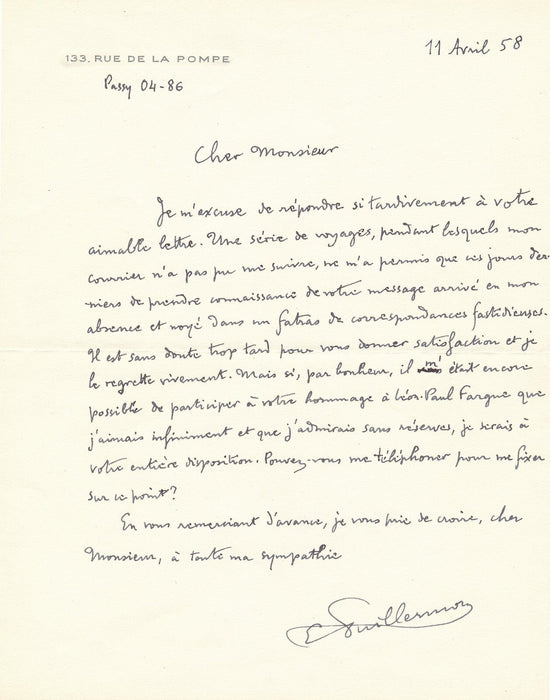 11 Avril 58
133, RUE DE LA POMPE
Passy 04-86
Cher Monsieur
Je m'excuse de répondre si tardivement à votre
aimable lettre. Une série de voyages, pendant lesquels mon
courrier n'a pas pu me suivre, ne m'a permis que ces jours der-
niers de prendre connaissance de votre message arrivé en mon
absence et noyé dans un fatras de correspondances fastidieuses.
Il est sans doute trop tard pour vous donner satisfaction et je
le regrette vivement. Mais si, par bonheur, il m' était encore
possible de participer à votre hommage à Léon-Paul Fargue que
j'aimais infiniment et que j'admirais sans réserves, je serais à
votre entière disposition. Pouvez-vous me téléphoner pour me fixer
sur ce point?
En vous remerciant d'avance, je vous prie de croire, cher
Monsieur, à toute ma sympathie